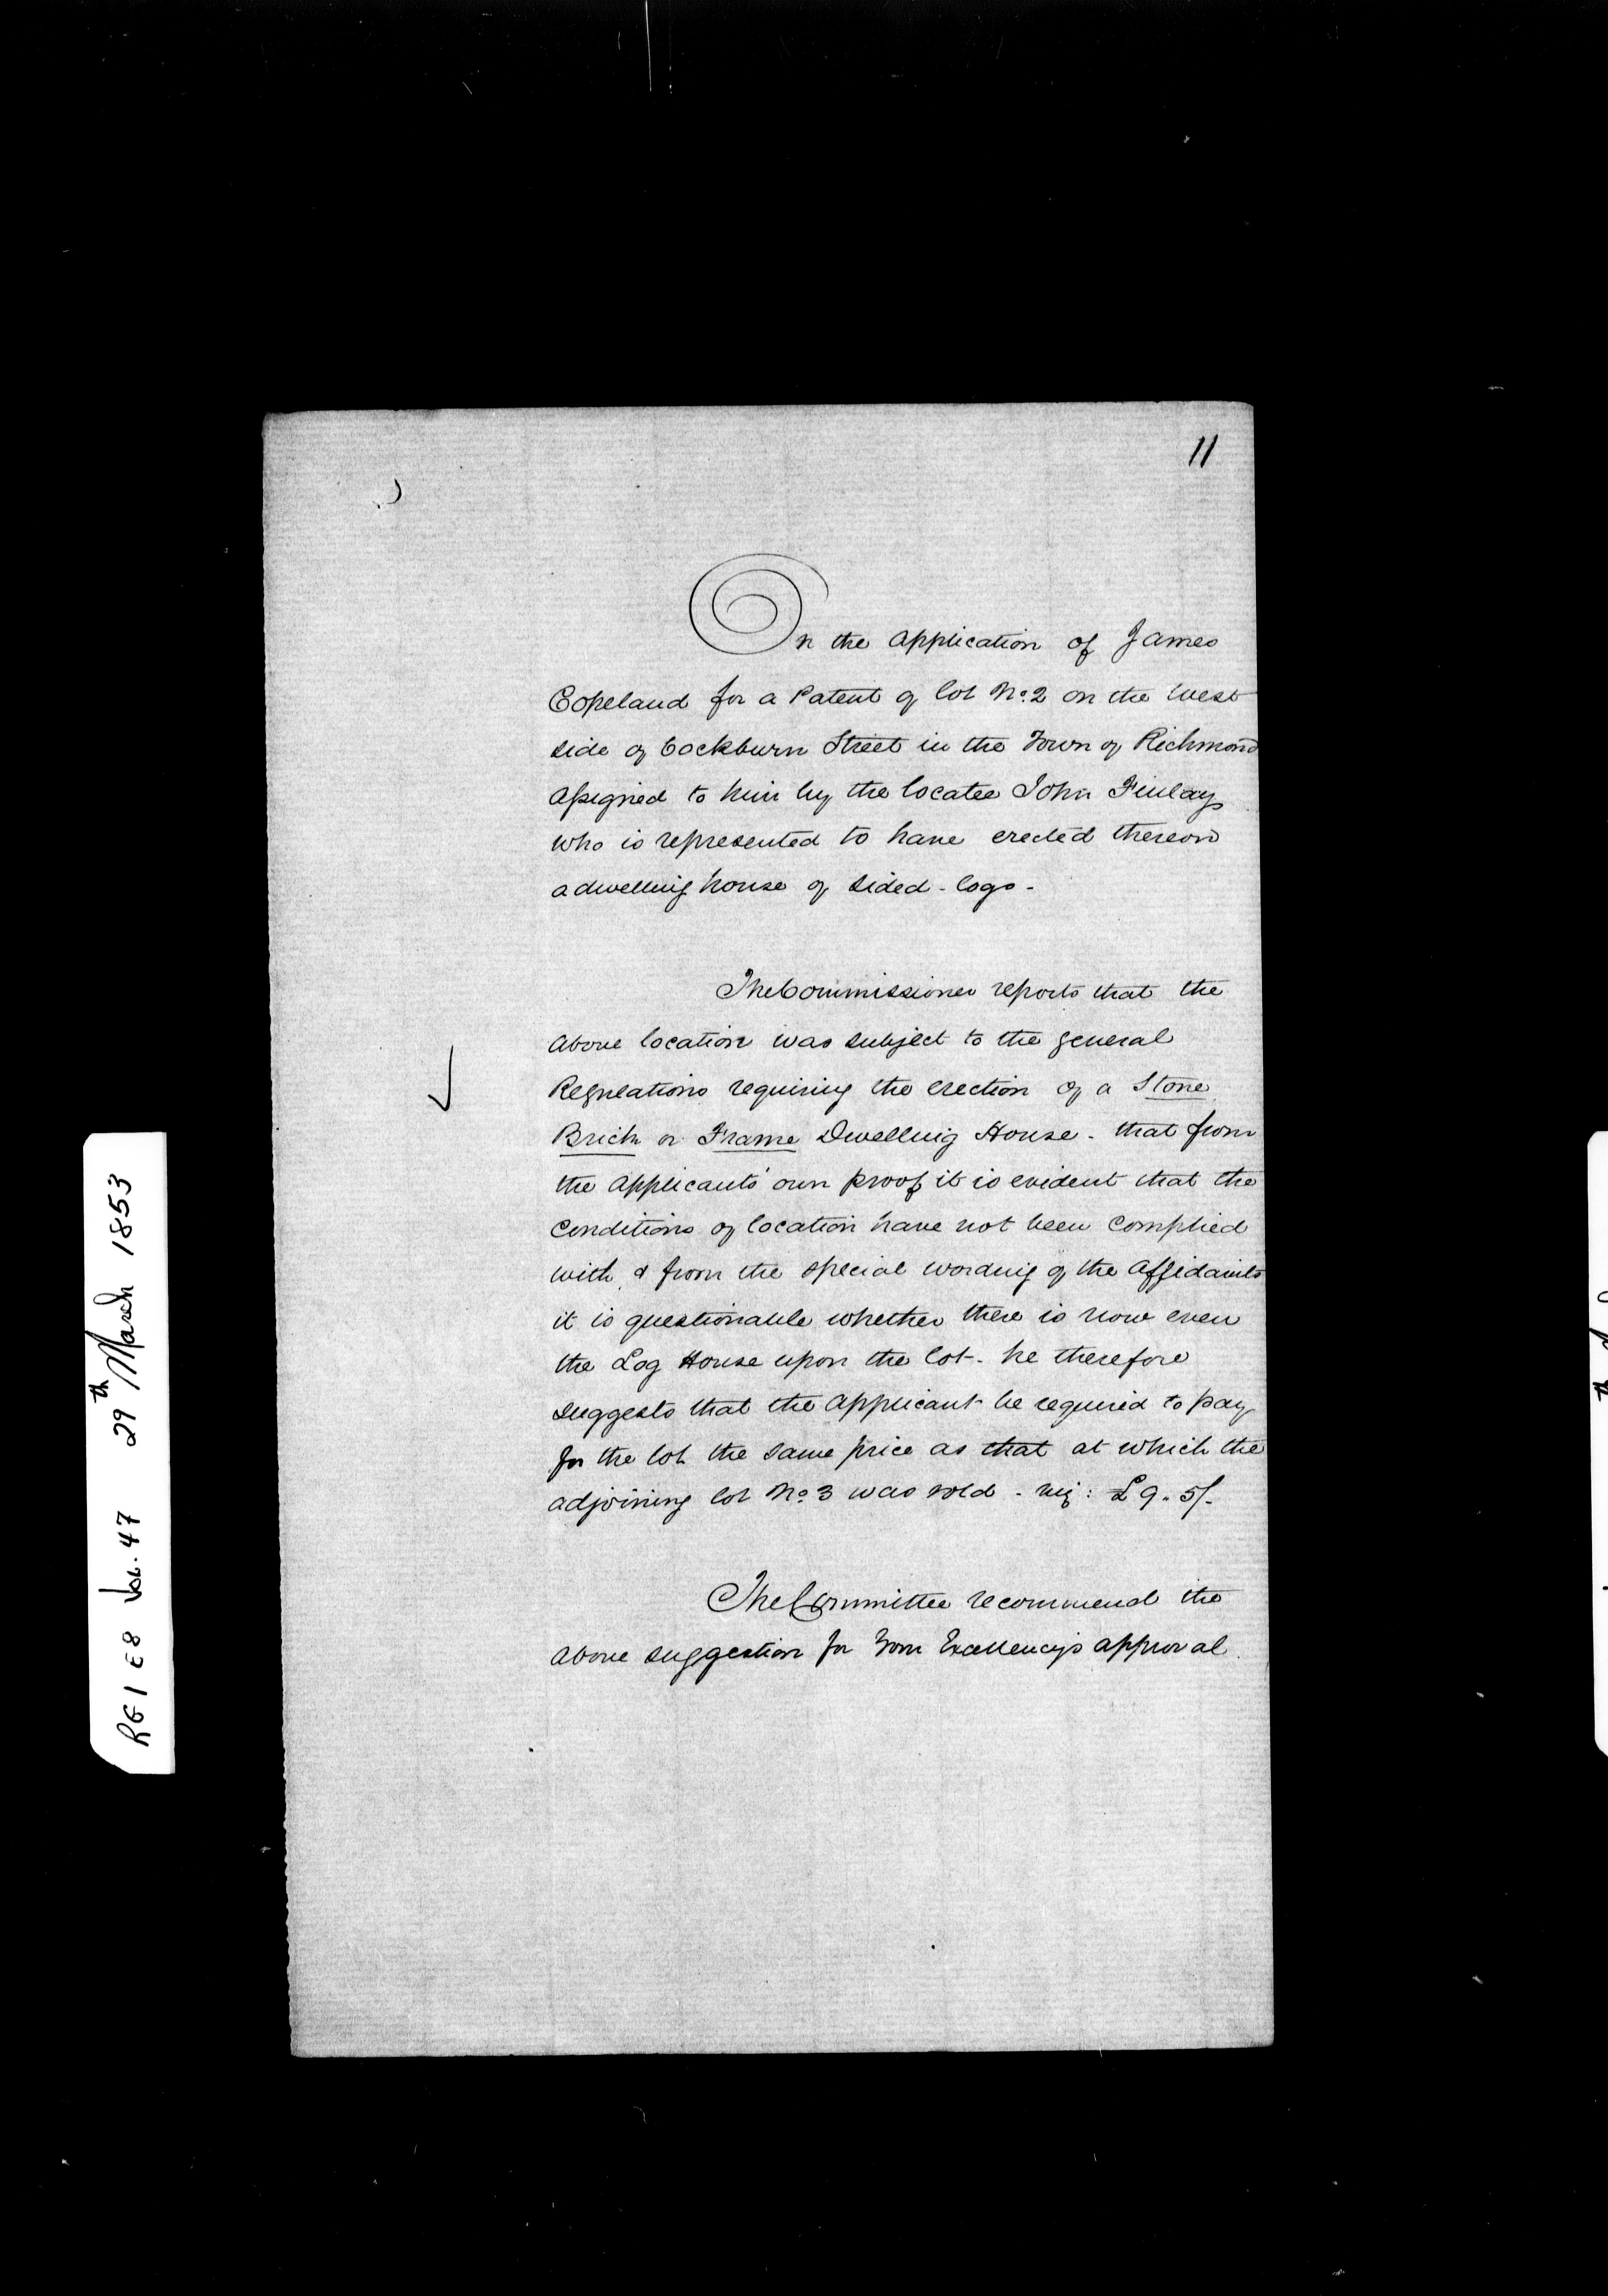 11
On the Application of James
Copeland for a Patent of lot No. 2 on the West
side of Cockburn Street in the Town of Richmond
Assigned to him by the locatee John Finlay
who is represented to have erected thereon
a dwelling house of sided - logs -
The Commissioner reports that the
above location was subject to the general
Regulations requiring the erection of a Stone
Brick or Frame Dwelling House - that from
the Applicants' own proof it is evident that the
conditions of location have not been complied
with & from the special wording of the Affidavits
it is questionable whether there is now even
the Log House upon the lot - he therefore
suggests that the Applicant be required to pay
for the lot the same price as that at which the
adjoining lot No. 3 was sold - viz: £9.5/-
The Committee recommend the
above suggestion for Your Excellency's approval.
RG1 E8 Vol. 47 29th March 1853